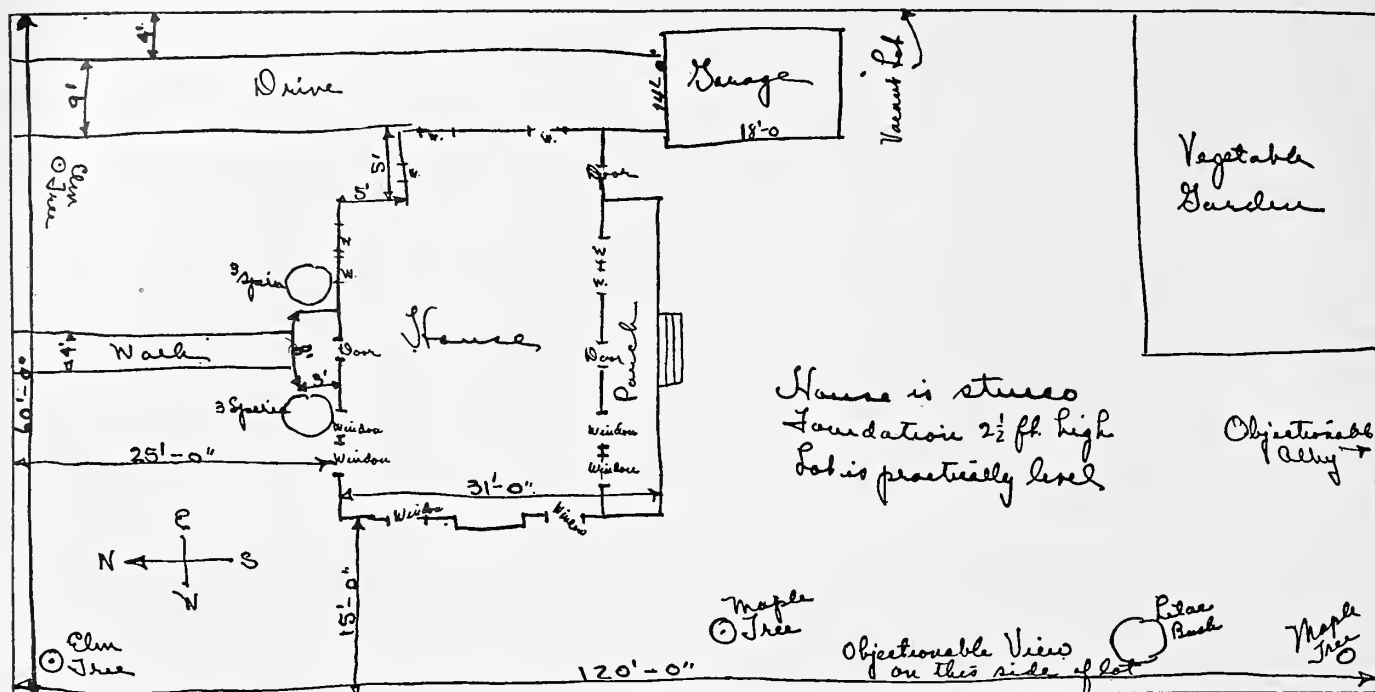 4'
9'
Drive
14'-0"
Garage
18'-0
Vacant Lot
Vegetable
Garden
Elm
Tree
5'
5'
W.
W.
W.
Door
W.
W.
3 Spirea
W.
W.
4'
Walk
8'
3'
Door
House
Door
Porch
3 Spirea
Window
Window
Window
Window
60'-0"
25'-0"
31'-0"
Window
Window
House is stucco
Foundation 2½ ft. high
Lot is practically level
Objectionable
Alley
N
S
15'-0"
Elm
Tree
Maple
Tree
Objectionable View
on this side of lot
Lilac
Bush
Maple
Tree
120'-0"